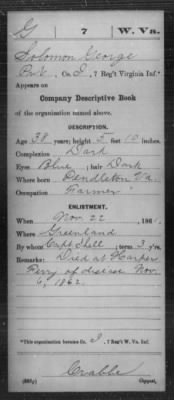 G 7 W. Va.
Solomon George
Pvt., Co. I, 7 Reg't Virginia Inf.*
Appears on
Company Descriptive Book
of the organization named above.
DESCRIPTION.
Age 38 years; height 5 feet 10 inches.
Complexion Dark
Eyes Blue; hair Dark
Where born Pendleton Va.
Occupation Farmer
ENLISTMENT.
When Nov. 22, 186
Where Greenland
By whom Capt Shell; term 3 y'rs.
Remarks: Died at Harper
Ferry of disease Nov
6, 1862.
*This organization became Co. I, 7 Reg't W. Va. Inf.
Crabbe
Copyist.